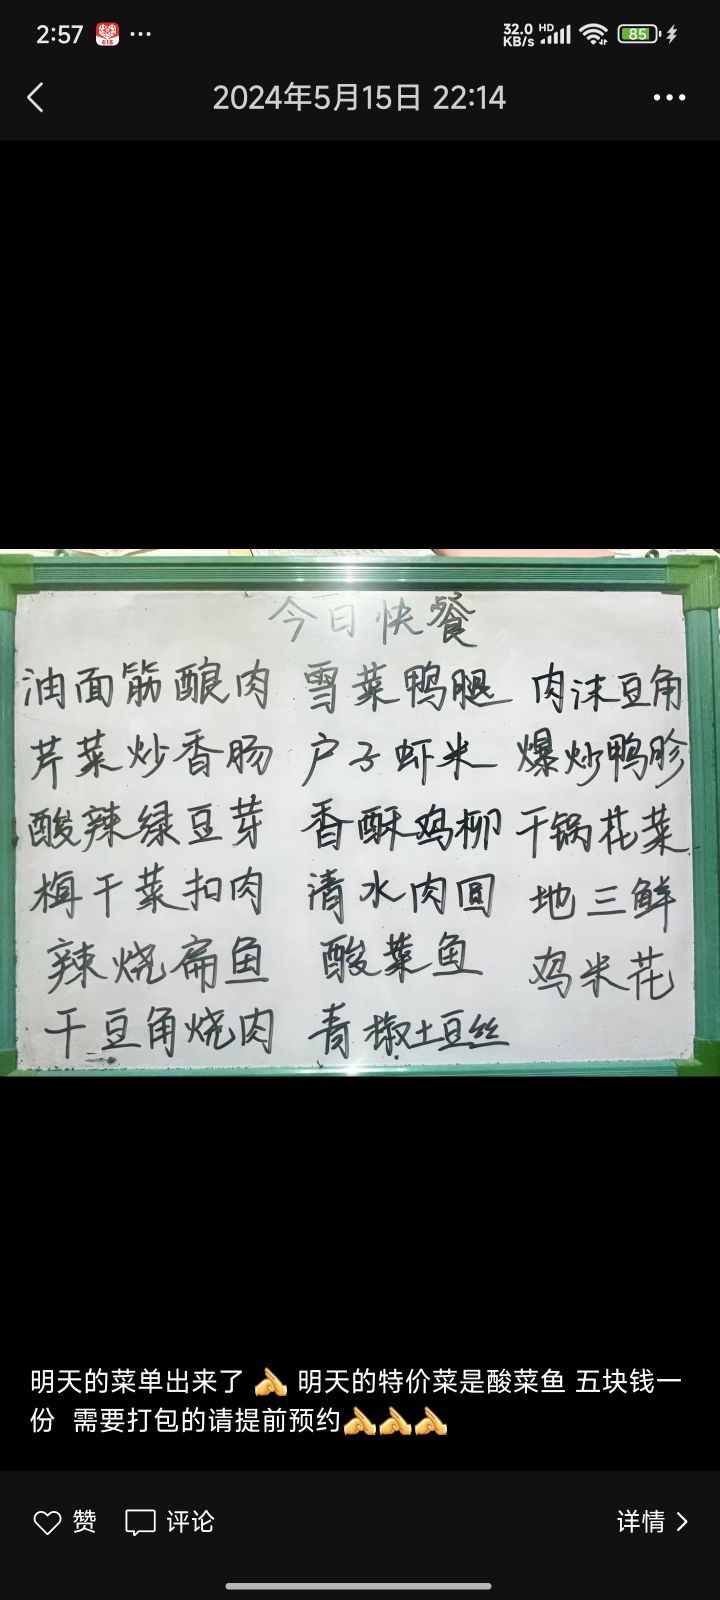 2:57
618
32.0 KB/s HD 85
2024年5月15日 22:14
今日快餐
油面筋酿肉 雪菜鸭腿 肉沫豆角
芹菜炒香肠 户子虾米 爆炒鸭胗
酸辣绿豆芽 香酥鸡柳 干锅花菜
梅干菜扣肉 清水肉圆 地三鲜
辣烧扁鱼 酸菜鱼 鸡米花
干豆角烧肉 青椒土豆丝
明天的菜单出来了 🫴 明天的特价菜是酸菜鱼 五块钱一
份 需要打包的请提前预约🫴🫴🫴
赞 评论 详情